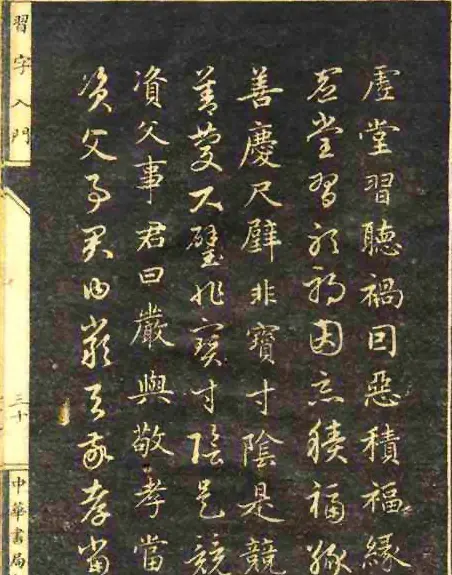 虛堂習聽禍因惡積福緣
虛堂習聽禍因惡積福緣
善慶尺璧非寶寸陰是競
善慶尺璧非寶寸陰是競
資父事君曰嚴與敬孝當
資父事君曰嚴與敬孝當
習字入門
三十
中華書局